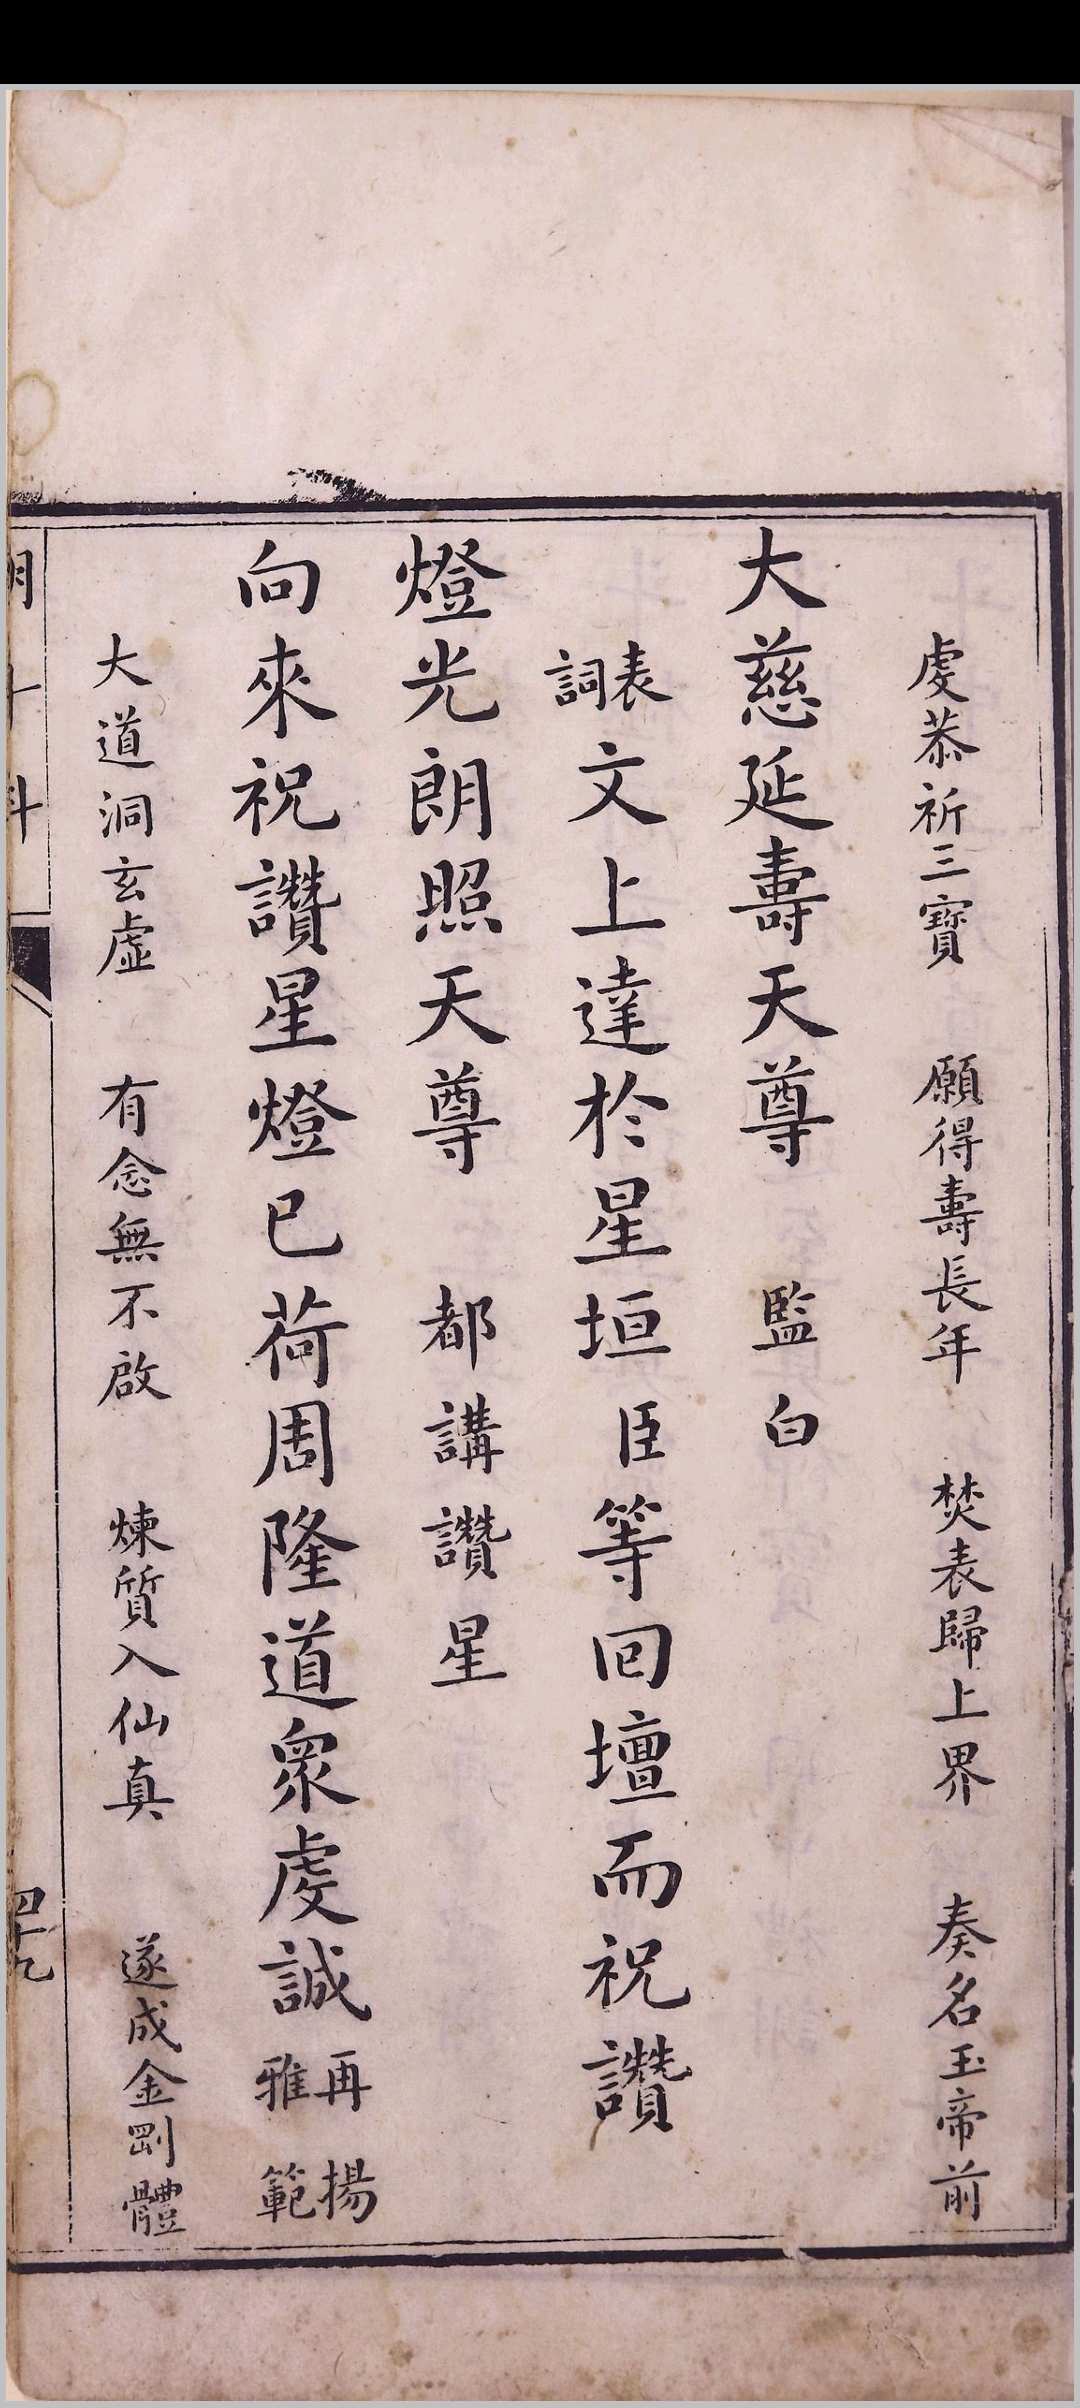 虔恭祈三寶　願得壽長年　焚表歸上界　奏名玉帝前
大慈延壽天尊　監白
表詞文上達於星垣臣等回壇而祝讚
燈光朗照天尊　都講讚星
向來祝讚星燈已荷周隆道衆虔誠再揚雅範
大道洞玄虛　有念無不啟　煉質入仙真　遂成金剛體
朝斗科
四十九